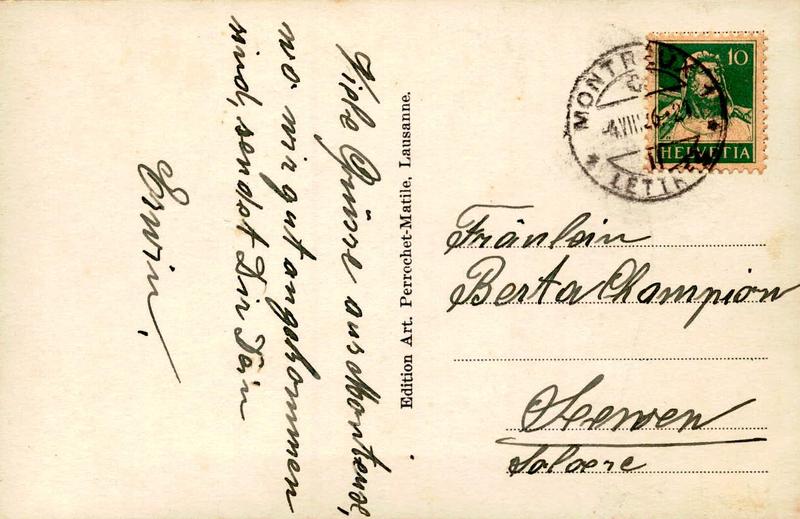 Viele Grüsse aus Montreux,
wo wir gut angekommen
sind, sendet Dir Dein
Erwin.
Edition Art. Perrochet-Matile, Lausanne.
MONTREUX 1
4.VIII.26
LETTR
10
HELVETIA
Fräulein
Berta Champion
Seewen